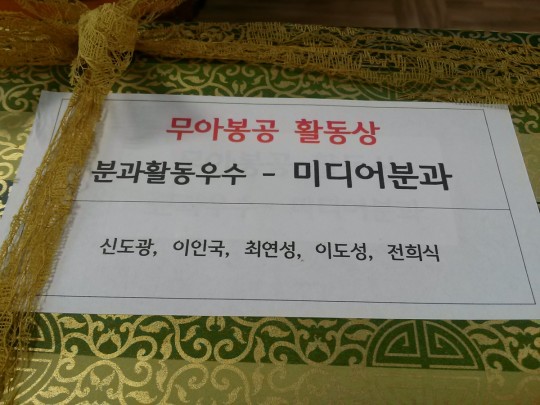 무아봉공 활동상
분과활동우수 - 미디어분과
신도광, 이인국, 최연성, 이도성, 전희식